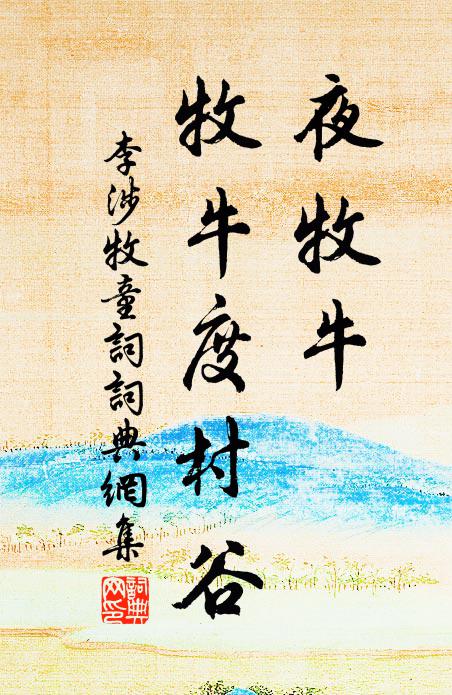 夜牧牛
牧牛度村谷
李涉牧童詞詞典網集